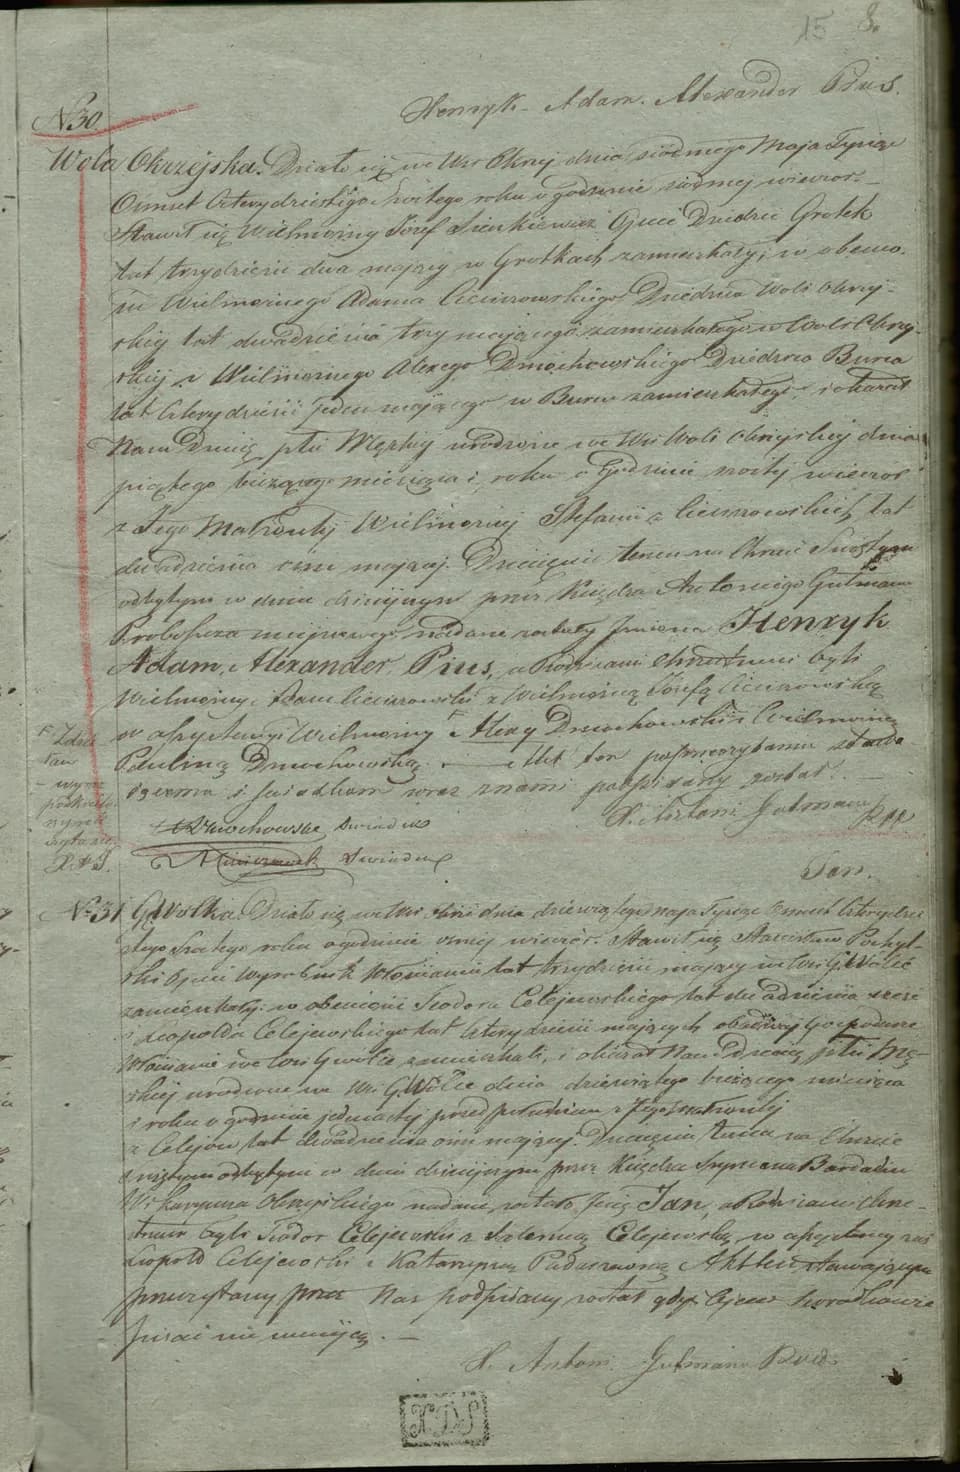 15 8.
Henryk Adam Alexander Pius.
N 30.
Wola Okrzejska. Działo się we Wsi Okrzej dnia siódmego Maja Tysiąc
Osmset Czterydziestego Szóstego roku o godzinie siódmej wieczor.
Stawił się Wielmożny Józef Sienkiewicz Ojciec Dziedzic Grotek
lat trzydzieści dwa mający w Grotkach zamieszkały, w obecno-
ści Wielmożnego Adama Cieciszowskiego Dziedzica Woli Okrzej-
skiej lat dwadzieścia trzy mającego zamieszkałego w Woli Okrzej-
skiej i Wielmożnego Alexego Dmochowskiego Dziedzica Burca
lat Czterydzieści jeden mającego w Burcu zamieszkałego, i okazał
Nam Dziecię płci Męzkiej urodzone we Wsi Woli Okrzejskiej dnia
piątego bieżącego miesiąca i roku o Godzinie szóstej wieczor
z Jego Małżonki Wielmożnej Stefanii z Cieciszowskich lat
dwadzieścia mającej. Dziecięciu temu na Chrzcie Świętym
odbytym w dniu dzisiejszym przez Księdza Antoniego Gutmana
Proboszcza miejscowego nadane zostały Imiona Henryk
Adam, Alexander, Pius, a Rodzicami Chrzestnemi byli
Wielmożny Adam Cieciszowski z Wielmożną Józefą Cieciszowską
w assystencyi Wielmożny Alexy Dmochowski i Wielmożna
Pauliną Dmochowską. Akt ten po przeczytaniu
i świadkom wraz znami podpisany został.
X. Antoni Gutman
Dmochowski świadek
A Cieciszowski świadek
Jan.
N 31 G. Wolka. Działo się we Wsi Okrzei dnia dziewiątego maja Tysiąc Osmset Czterydzie-
stego Szóstego roku o godzinie osmej wieczór. Stawił się Stanisław
Ojciec Wyrobnik Włościanin lat trzydzieści mający we Wsi G. Wolce
zamieszkały w obecności Teodora Celejewskiego lat dwadzieścia sześć
i Leopolda Celejewskiego lat Czterydzieści mających obadwaj Gospodarze
Włościanie we Wsi G. Wolce zamieszkali, i okazał Nam Dziecię płci Mę-
skiej urodzone we Wsi G. Wolce dnia dziewiątego bieżącego miesiąca
i roku o godzinie jedenastej przed południem z Jego Małżonki
z Celejów lat dwadzieścia ośm mającej. Dziecięciu temu na Chrzcie
Świętym odbytym w dniu dzisiejszym przez Księdza Szymona
Wikaryusza Okrzejskiego nadane zostało Imię Jan, a Rodzicami Chrze-
stnemi byli Teodor Celejewski z Celejewską, w assystencyi zaś
Leopold Celejewski z Katarzyną Akt ten stawającym
przeczytany przez Nas podpisany został gdyż Ojciec i Świadkowie
pisać nie umieją.
X. Antoni Gutman
XDS